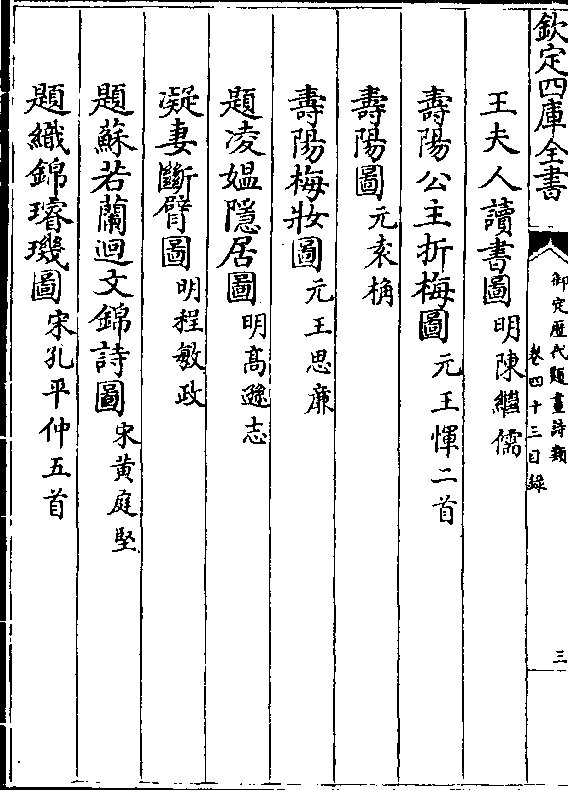 欽定四庫全書
御定歴代題畫詩類
卷四十三目録
三
王夫人讀書圖 明陳繼儒
壽陽公主折梅圖 元王惲二首
壽陽圖 元袁桷
壽陽梅妝圖 元王思廉
題凌媪隱居圖 明髙遜志
凝妻斷臂圖 明程敏政
題蘇若蘭迴文錦詩圖 宋黄庭堅
題織錦璿璣圖 宋孔平仲五首